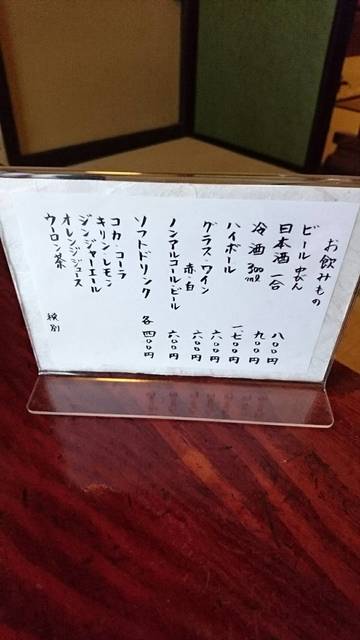 お飲みもの
ビール 中びん 八〇〇円
日本酒 一合 九〇〇円
冷酒 300ml 一、七〇〇円
ハイボール 六〇〇円
グラス・ワイン 赤・白 六〇〇円
ノンアルコール・ビール 六〇〇円
ソフトドリンク 各 四〇〇円
コカ・コーラ
キリン・レモン
ジンジャーエール
オレンジジュース
ウーロン茶
税別